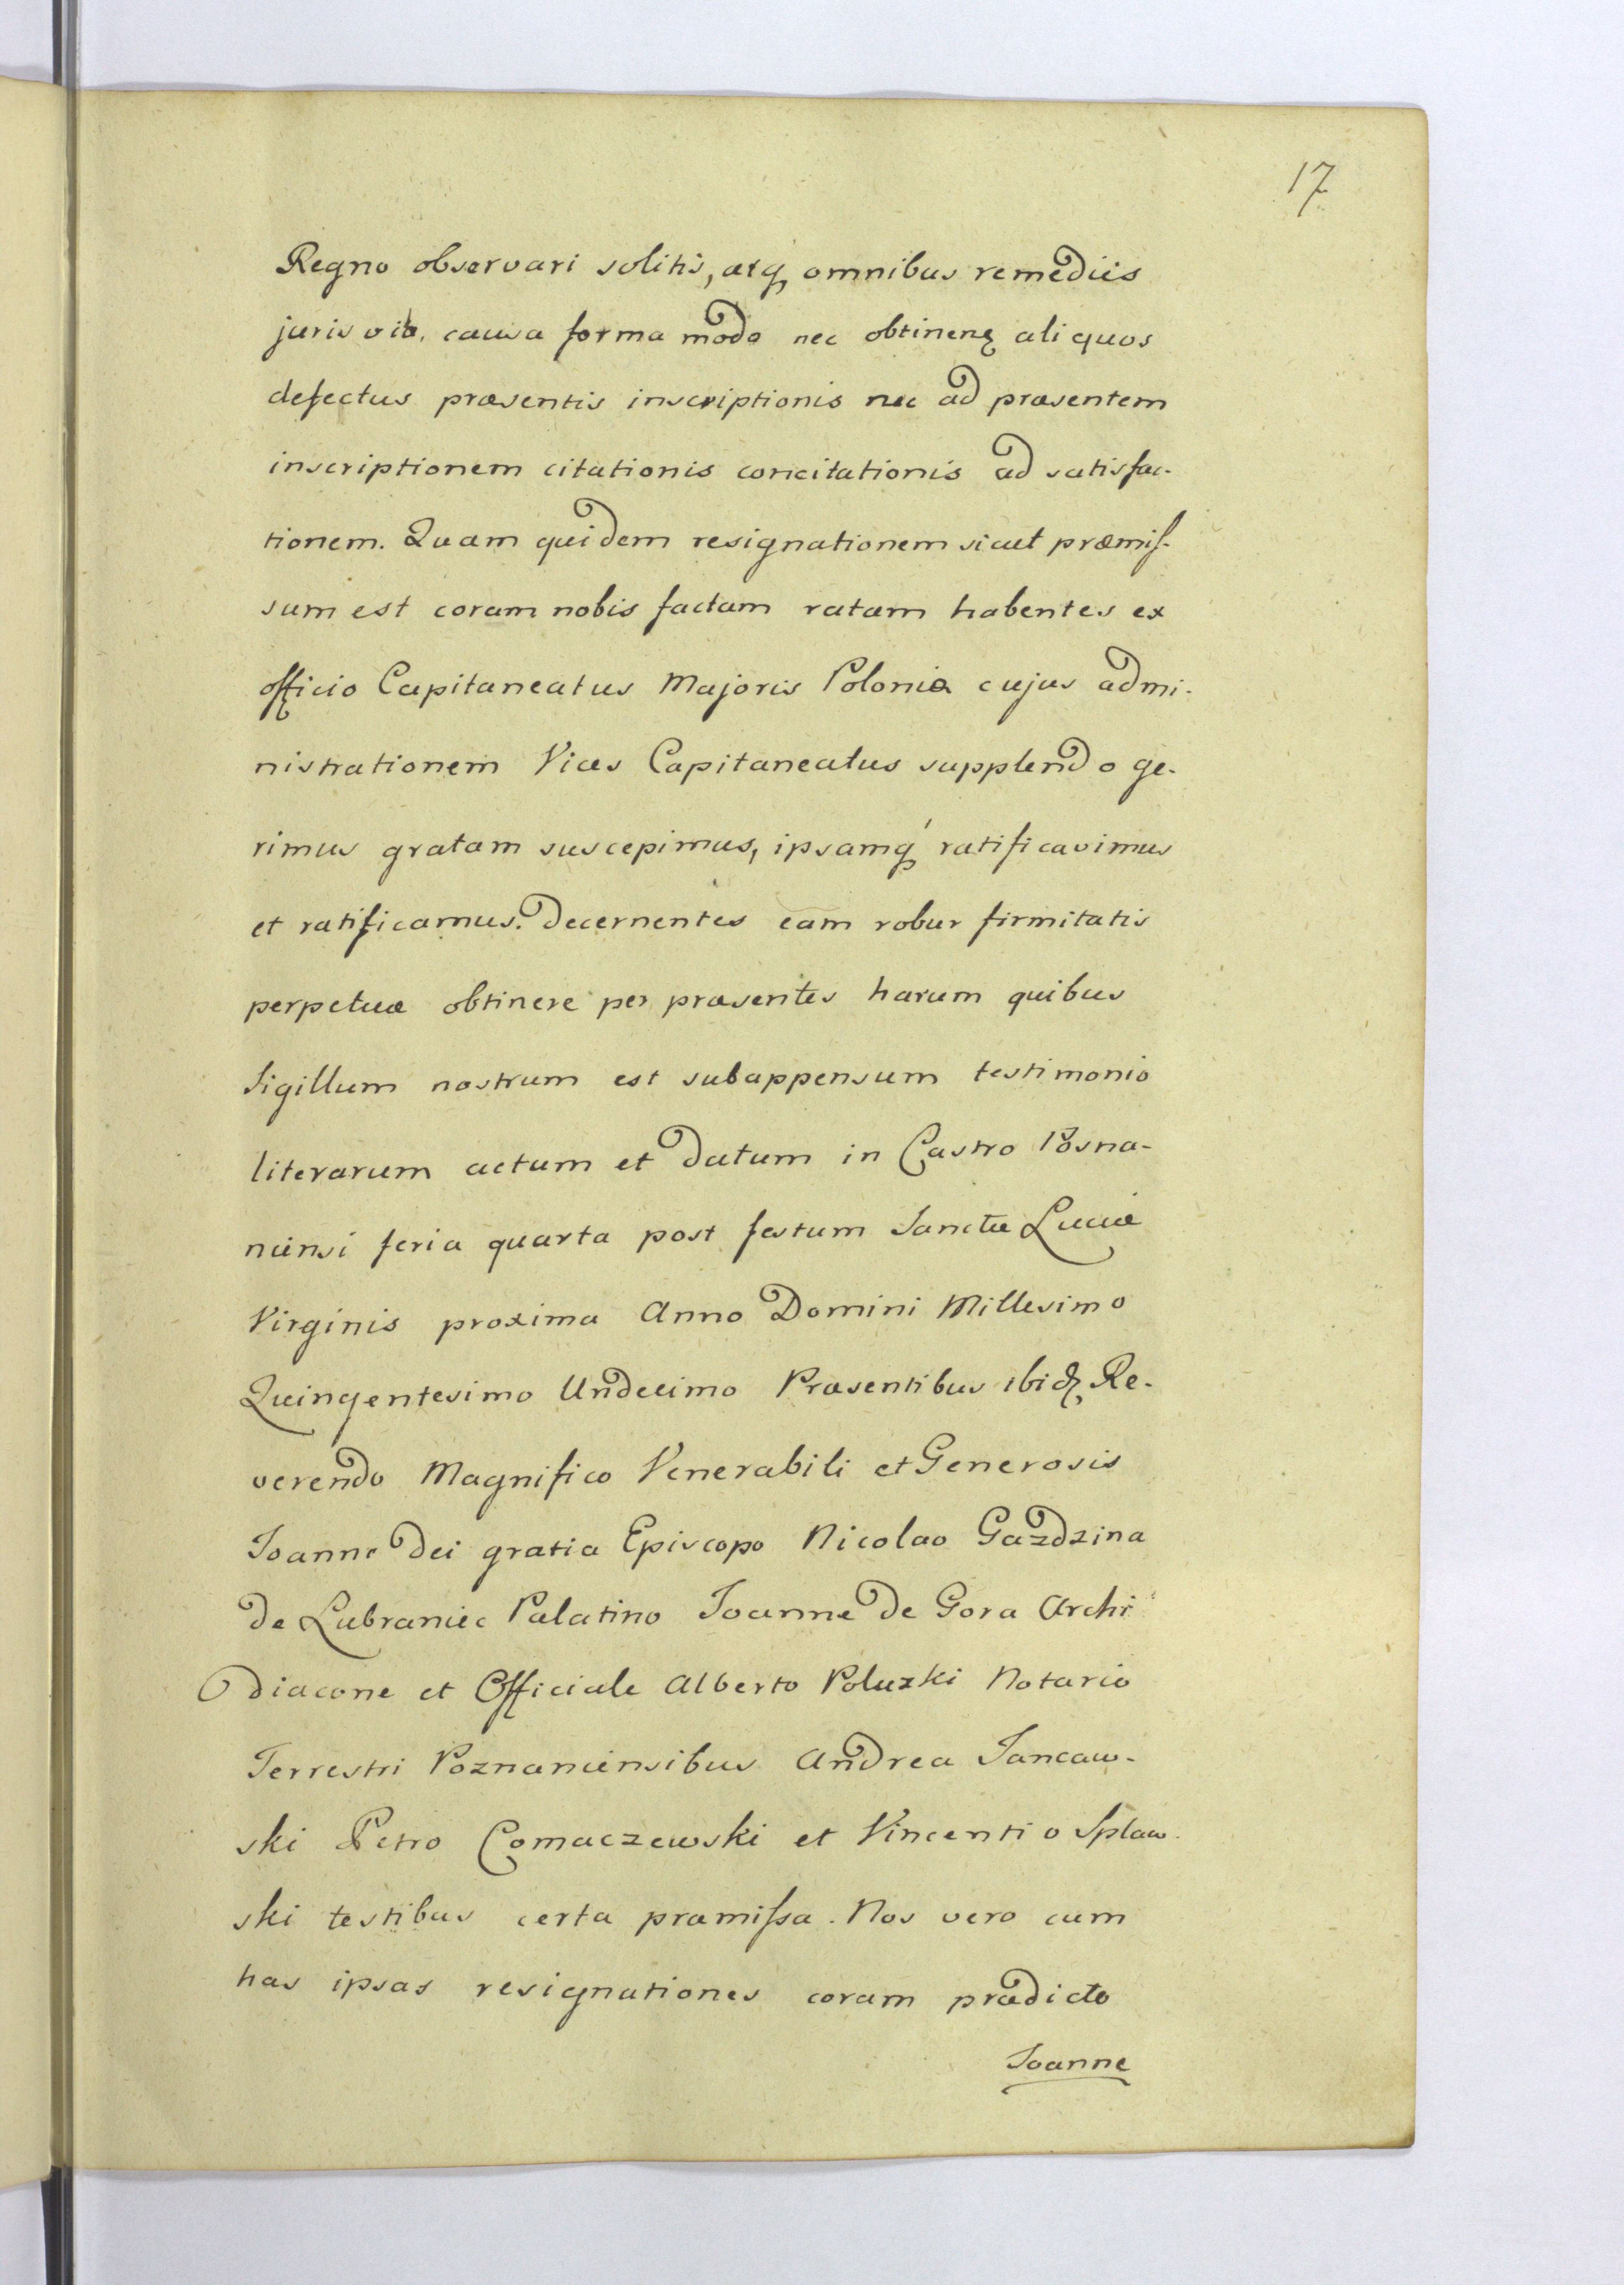 17
Regno observari solitis, atq, omnibus remediis
juris causa forma modo nec obtinenę aliquos
defectus præsentis inscriptionis nec ad præsentem
inscriptionem citationis concitationis ad satisfac-
tionem. Quam quidem resignationem sicut præmiſ-
sum est coram nobis factam ratam habentes ex
officio Capitaneatus Majoris Poloniæ cujus admi-
nistrationem Vices Capitaneatus supplendo ge-
rimus gratam suscepimus, ipsamq́ ratificavimus
et ratificamus. Decernentes eam robur firmitatis
perpetuæ obtinere per præsentes harum quibus
Sigillum nostrum est subappensum testimonio
literarum actum et datum in Castro Posna-
niensi feria quarta post festum Sanctæ Luciæ
Virginis proxima Anno Domini Millesimo
Quingentesimo Undecimo Præsentibus ibidꝫ Re-
verendo Magnifico Venerabili et Generosis
Joanne Dei gratia Episcopo Nicolao Gazdzina
de Lubraniec Palatino Joanne de Gora Archi
diacone et Officiale Alberto Poluzki Notario
Terrestri Poznaniensibus Andrea Jancaw-
ski Petro Comaczewski et Vincentio Splaw-
ski testibus certa præmiſsa. Nos vero cum
has ipsas resignationes coram prædicto
Joanne